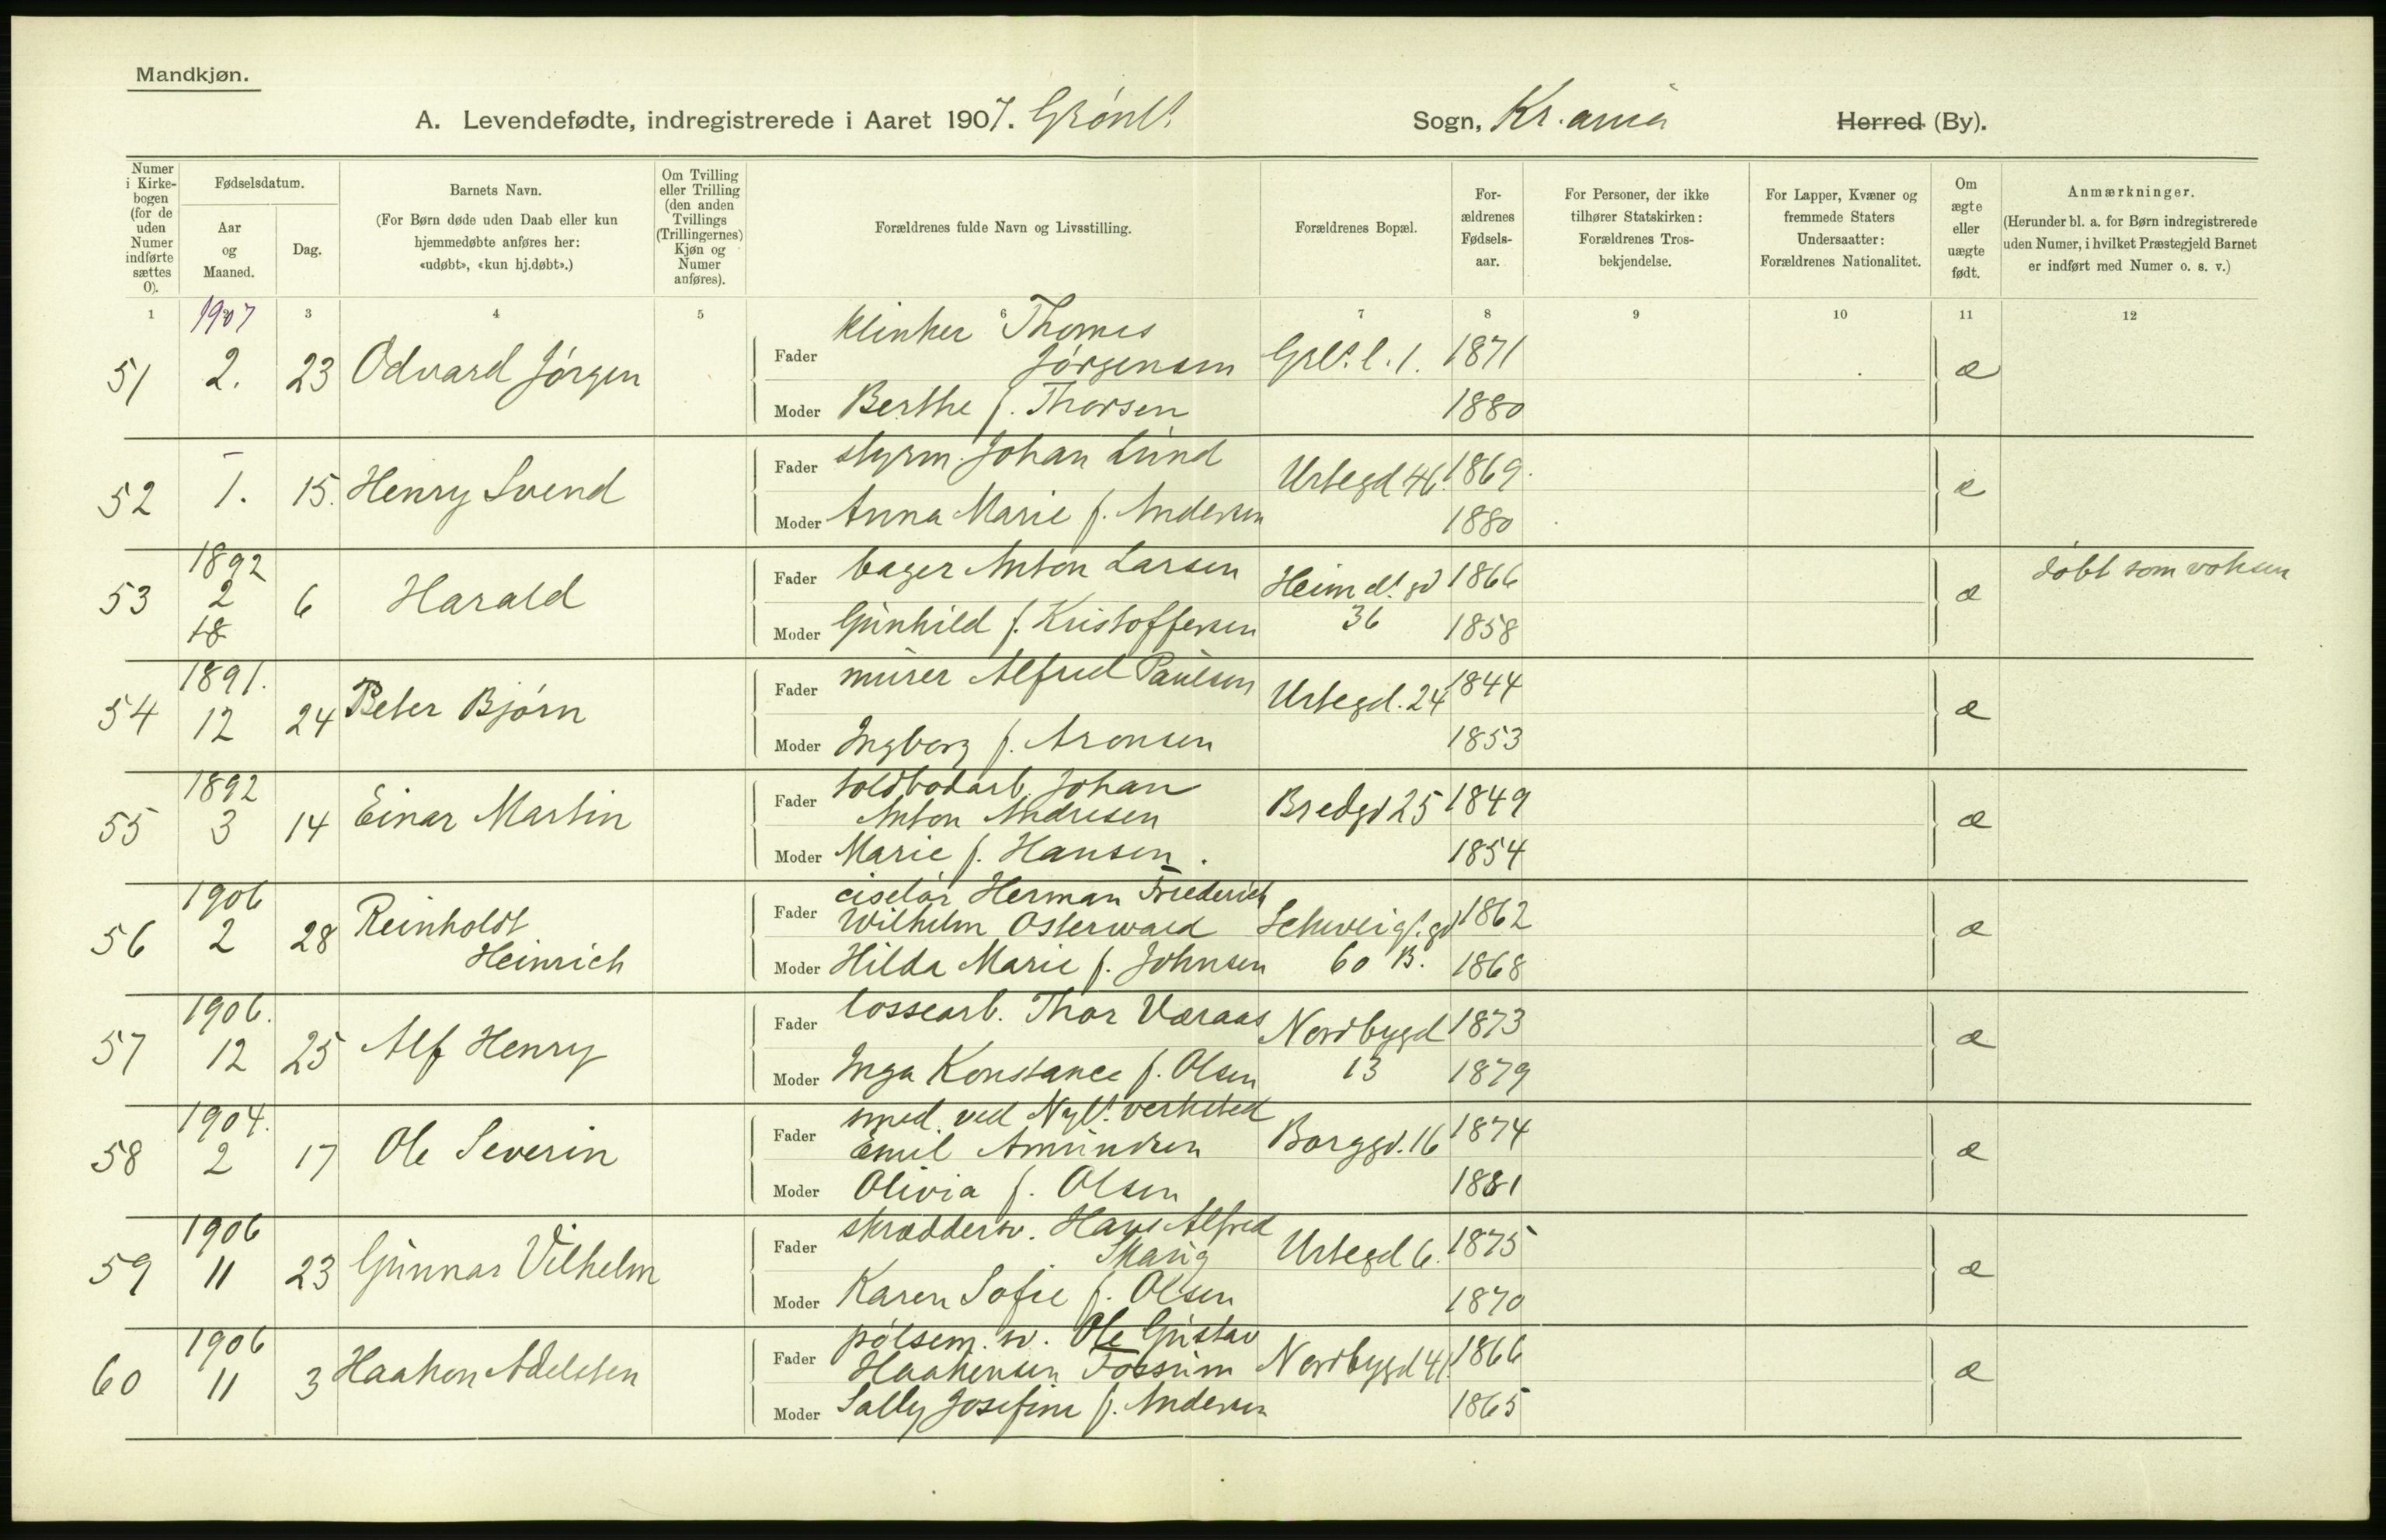 Mandkjøn.
A. Levendefødte, indregistrerede i Aaret 1907. Grønl. Sogn, Kr.ania Herred (By).
Numer i Kirke-bogen (for de uden Numer indførte sættes 0).
Fødselsdatum.
Aar og Maaned.
Dag.
Barnets Navn.
(For Børn døde uden Daab eller kun hjemmedøbte anføres her: «udøbt», «kun hj.døbt».)
Om Tvilling eller Trilling (den anden Tvillings (Trillingernes) Kjøn og Numer anføres).
Forældrenes fulde Navn og Livsstilling.
Forældrenes Bopæl.
For-ældrenes Fødsels-aar.
For Personer, der ikke tilhører Statskirken: Forældrenes Tros-bekjendelse.
For Lapper, Kvæner og fremmede Staters Undersaatter: Forældrenes Nationalitet.
Om ægte eller uægte født.
Anmærkninger.
(Herunder bl. a. for Børn indregistrerede uden Numer, i hvilket Præstegjeld Barnet er indført med Numer o. s. v.)
1 2 3 4 5 6 7 8 9 10 11 12
1907
51 2. 23 Odvard Jørgen Fader klinker Thomas Jørgensen Grl. l. 1. 1871 æ
Moder Berthe f. Thorsen 1880
52 – 1. 15. Henry Svend Fader styrm. Johan Lund Urtegd 46. 1869. æ
Moder Anna Marie f. Andersen 1880
53 1892 2 18 6 Harald Fader bager Anton Larsen Heimd. gd 36 1866 æ døbt som voksen
Moder Gunhild f. Kristoffersen 1858
54 1891. 12 24 Peter Bjørn Fader murer Alfred Paulsen Urtegd. 24 1844 æ
Moder Ingborg f. Aronsen 1853
55 1892 3 14 Einar Martin Fader toldbodarb. Johan Anton Andresen Bredgd 25 1849 æ
Moder Marie f. Hansen. 1854
56 1906 2 28 Reinholdt Heinrich Fader ciselør Herman Friederich Wilhelm Osterwald Schweig. gd 60 B. 1862 æ
Moder Hilda Marie f. Johnsen 1868
57 1906. 12 25 Alf Henry Fader lossearb. Thor Væraas Nordbygd 13 1873 æ
Moder Inga Konstance f. Olsen 1879
58 1904. 2 17 Ole Severin Fader smed ved Nyl. verksted Emil Amundsen Borggd. 16 1874 æ
Moder Olivia f. Olsen 1881
59 1906 11 23 Gunnar Vilhelm Fader skræddersv. Hans Alfred Skaug Urtegd 6. 1875 æ
Moder Karen Sofie f. Olsen 1870
60 1906 11 3 Haakon Adelsten Fader pølsem. sv. Ole Gustav Haakensen Fossum Nordbygd 41. 1866 æ
Moder Sally Josefine f. Andersen 1865